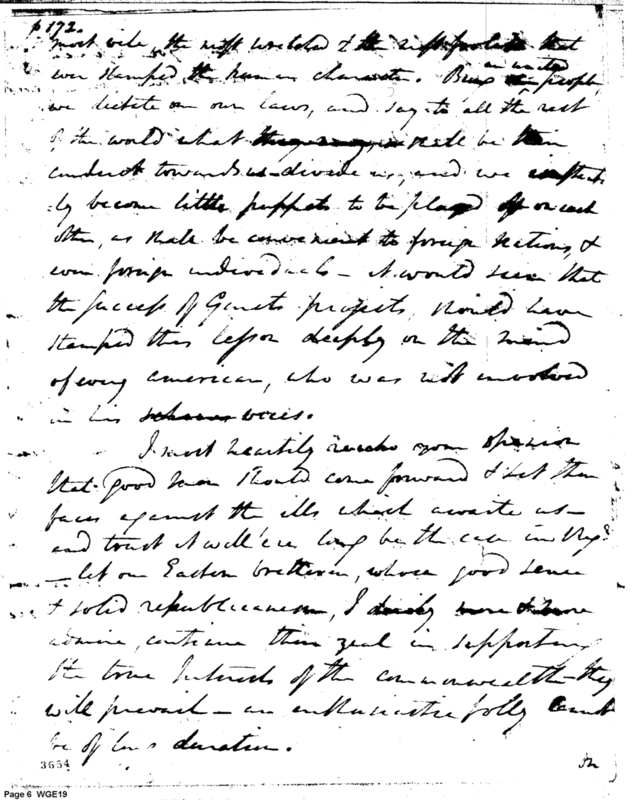 p 172.
most vile, the most wretched & the most that
ever stamped the human character. Being an united people,
we dictate our own laws, and say to all the rest
of the world what shall be their
conduct towards us - divide us, and we
ly become little puppets to be played off on each
other, as shall be convenient to foreign Nations, &
even foreign individuals - it would seem that
the success of Genets projects, should have
stamped this lesson deeply on the mind
of every american, who was not involved
in his schemes vices.
I most heartily your opinion
that good men should come forward & set their
faces against the ills which await us -
and trust it will e'er long be the case in Virga
- let our Eastern brethren, whose good sense
& solid republicanism, I daily more & more
admire, continue their zeal in supporting
the true Interests of the commonwealth - they
will prevail - an enthusiastic folly cannot
be of long duration.
3654
Page 6 WGE19